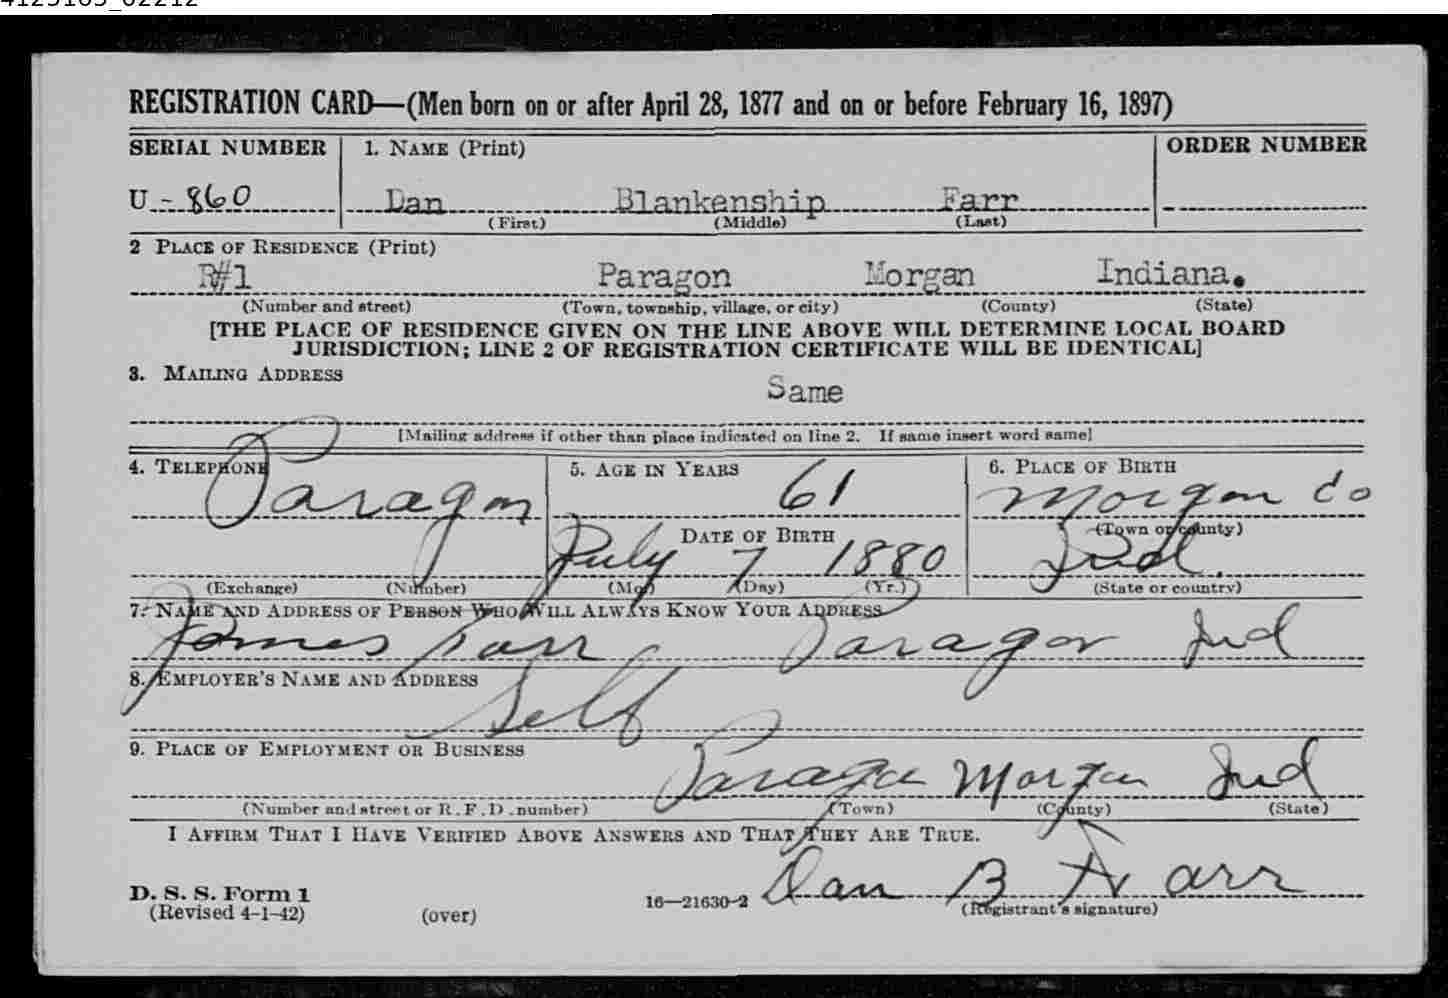 4125163_02212
REGISTRATION CARD—(Men born on or after April 28, 1877 and on or before February 16, 1897)
SERIAL NUMBER 1. NAME (Print) ORDER NUMBER
U - 860 Dan Blankenship Farr
(First) (Middle) (Last)
2 PLACE OF RESIDENCE (Print)
R#1 Paragon Morgan Indiana.
(Number and street) (Town, township, village, or city) (County) (State)
[THE PLACE OF RESIDENCE GIVEN ON THE LINE ABOVE WILL DETERMINE LOCAL BOARD
JURISDICTION; LINE 2 OF REGISTRATION CERTIFICATE WILL BE IDENTICAL]
3. MAILING ADDRESS
Same
[Mailing address if other than place indicated on line 2. If same insert word same]
4. TELEPHONE 5. AGE IN YEARS 6. PLACE OF BIRTH
Paragon 61 Morgan Co
DATE OF BIRTH (Town or county)
July 7 1880 Ind.
(Exchange) (Number) (Mo.) (Day) (Yr.) (State or country)
7. NAME AND ADDRESS OF PERSON WHO WILL ALWAYS KNOW YOUR ADDRESS
James Farr Paragon Ind
8. EMPLOYER'S NAME AND ADDRESS
Self
9. PLACE OF EMPLOYMENT OR BUSINESS
Paragon Morgan Ind
(Number and street or R. F. D. number) (Town) (County) (State)
I AFFIRM THAT I HAVE VERIFIED ABOVE ANSWERS AND THAT THEY ARE TRUE.
Dan B Farr
D. S. S. Form 1
(Revised 4-1-42) (over) 16—21630-2 (Registrant's signature)